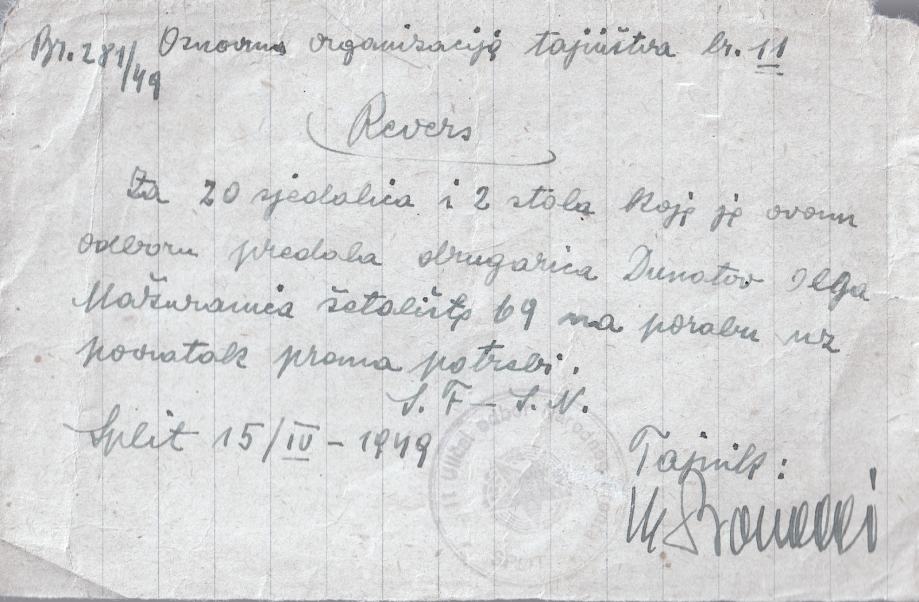 Br. 281/49 Osnovna organizacija tajništva br. 11
Revers
Za 20 sjedalica i 2 stola koje je ovom
odboru predala drugarica Dunatov Olga
Mažuranića šetalište 69 na porabu uz
povratak prama potrebi.
S. F – S. N.
Split 15/IV – 1949
Tajnik:
II ulični odbor Narodnog
SPLIT